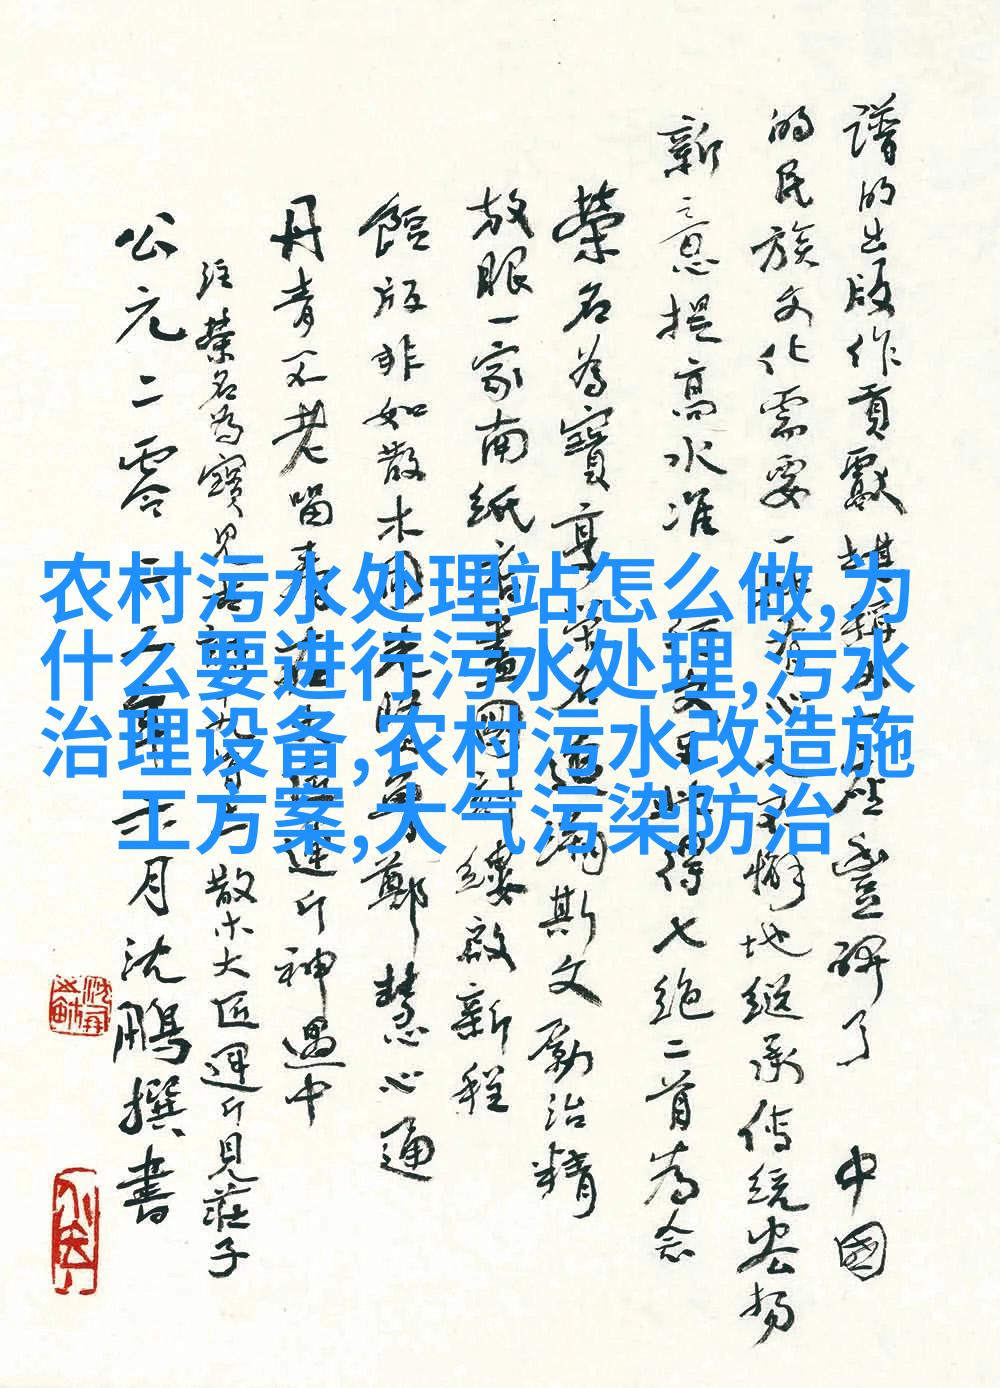 谱的出版作贡献堪称
豊碑了 中国
的民族文化需要一
有心
不懈地继承传统宏扬
新意提高水准
得七绝二首为念
荣名为宝享荣名
斯文励治精
放眼一家南纸店画图
缕启新程
馆版非如散木用
郑慧心通
丹青不老留春
运斤神遇中
注荣名为宝见
散木大匠运斤见庄子
公元二零一二年
月沈鹏撰书
农村污水处理站怎么做,为
什么要进行污水处理,污水
治理设备,农村污水改造施
工方案,大气污染防治